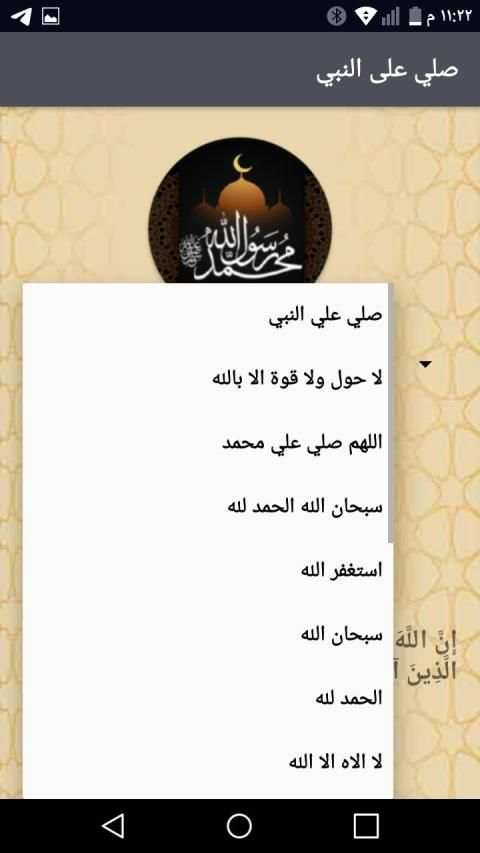 ١١:٢٢ م
صلي على النبي
محمد رسول الله
صلي علي النبي
لا حول ولا قوة الا بالله
اللهم صلي علي محمد
سبحان الله الحمد لله
استغفر الله
سبحان الله
الحمد لله
لا الاه الا الله
إِنَّ اللَّهَ
الَّذِينَ آ